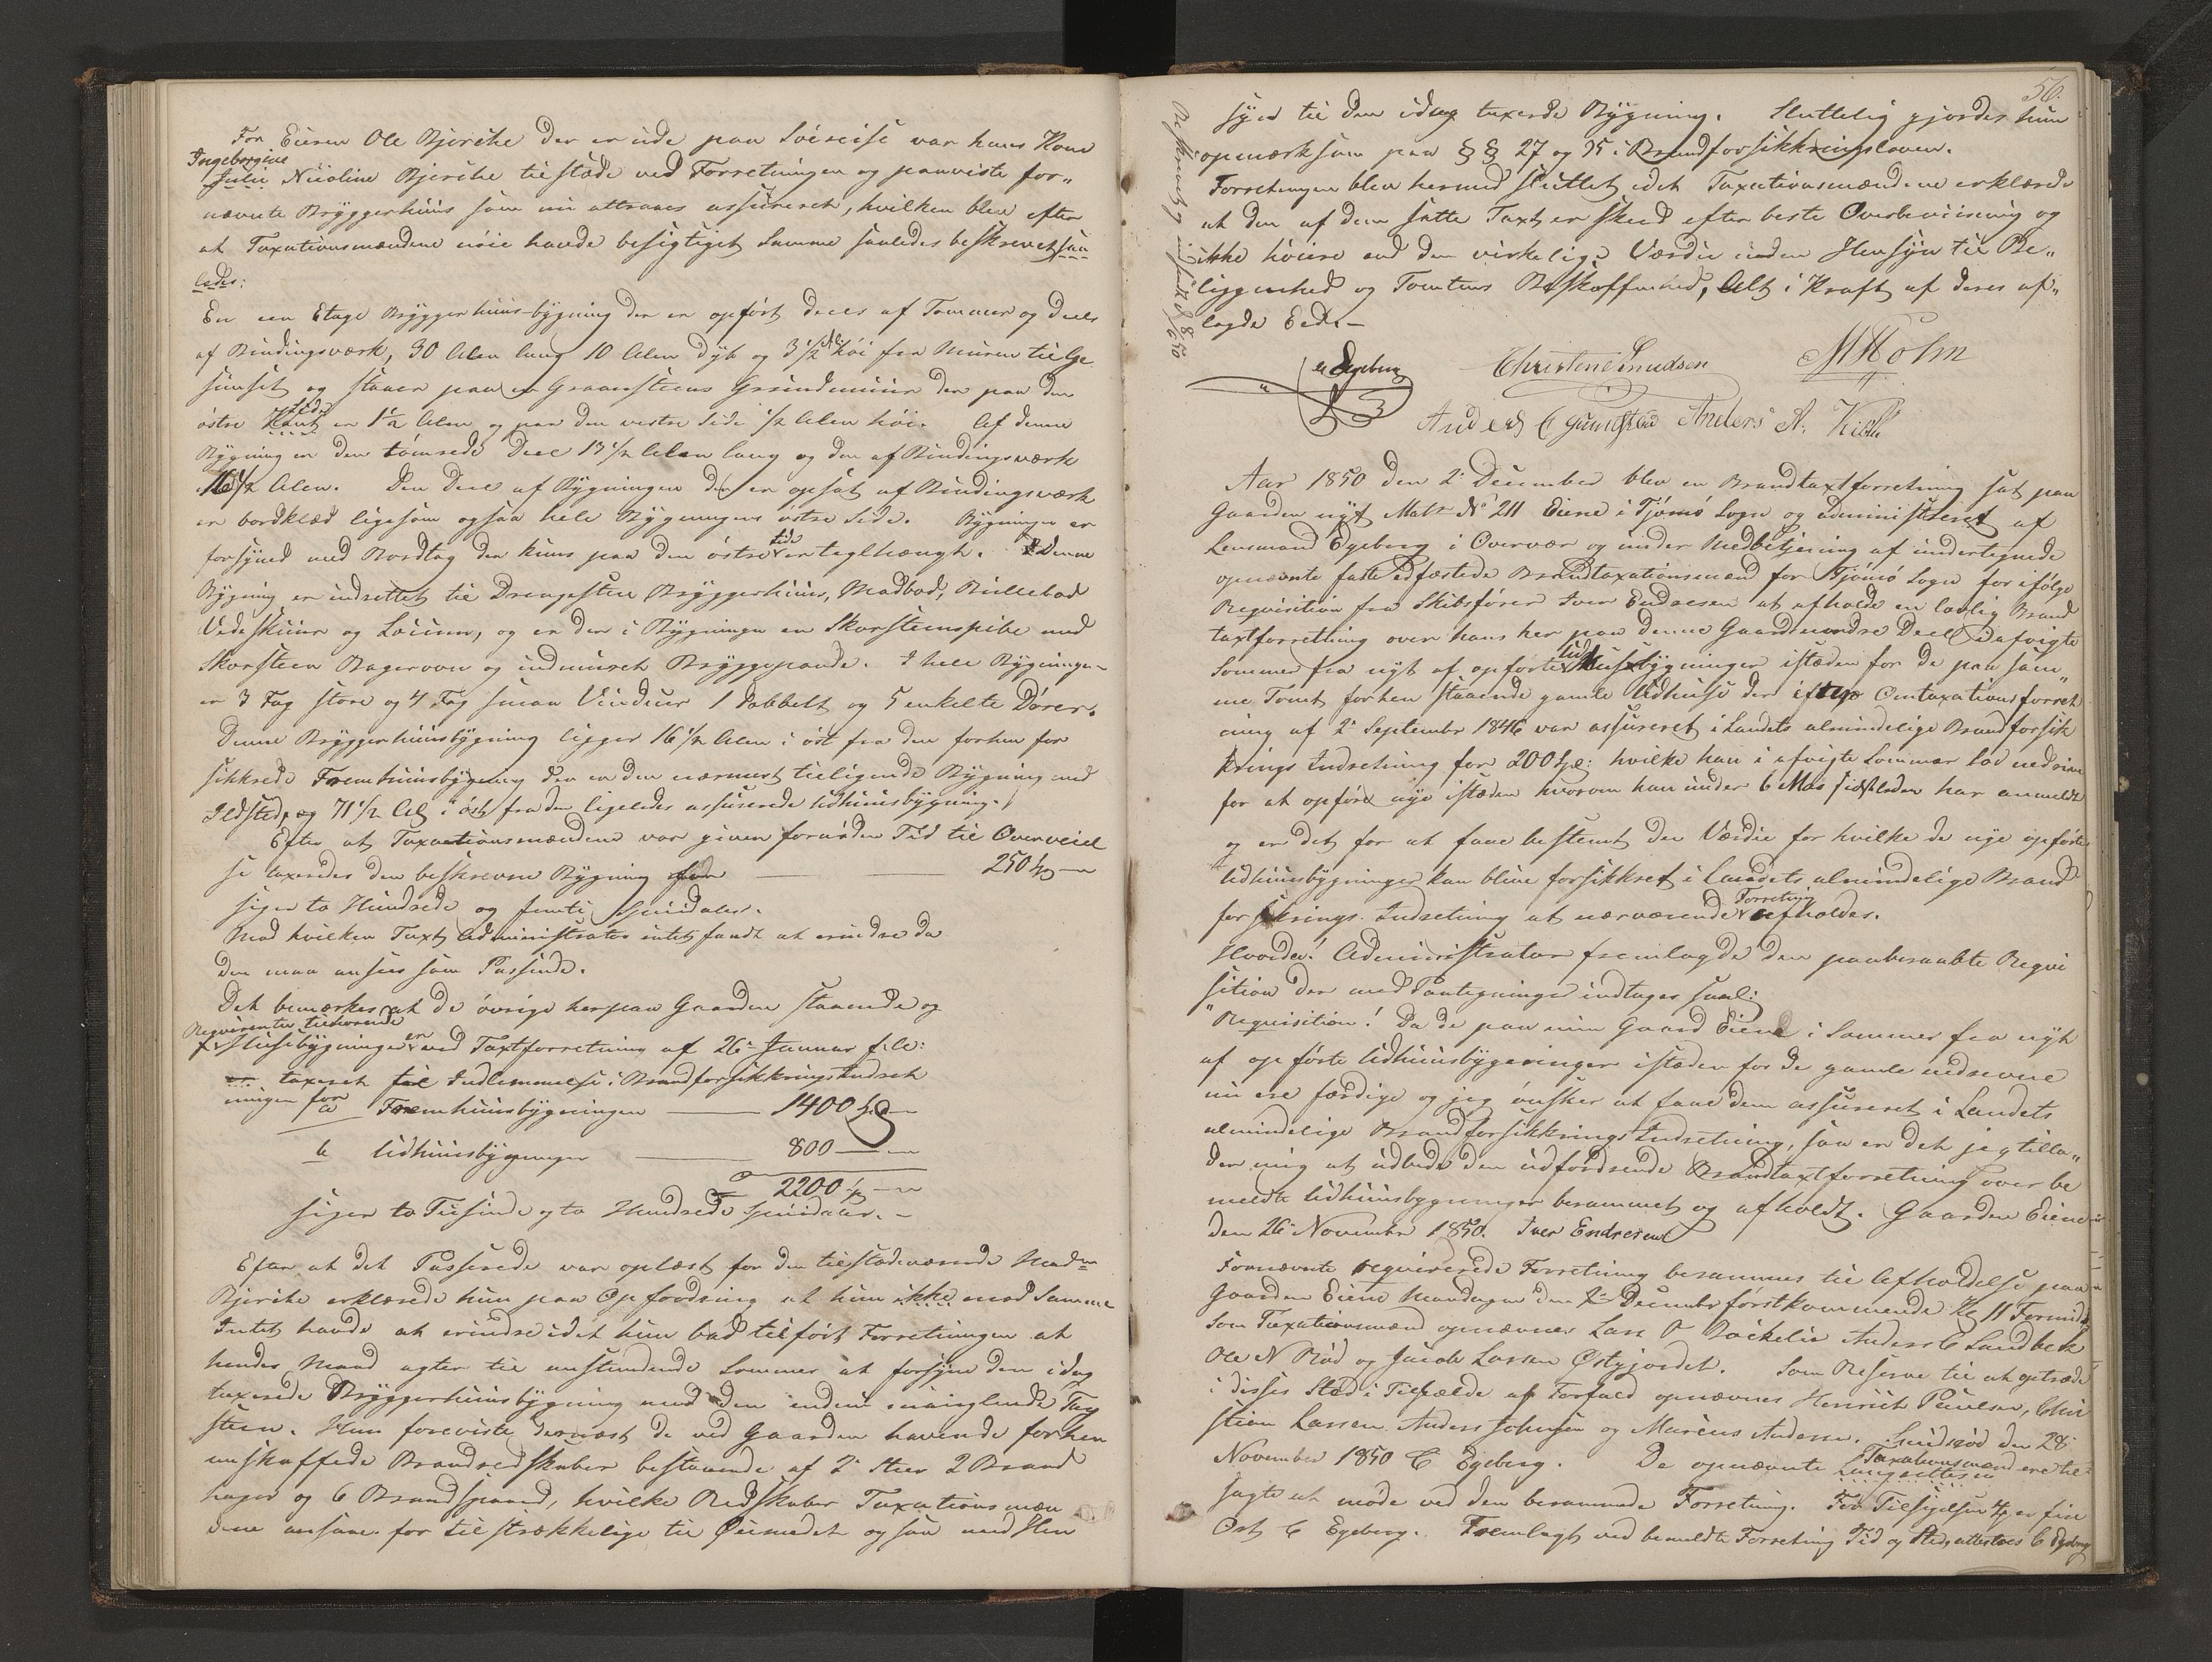 For Eieren Ole Bjerche der er ude paa Søreise var hans Kone
Ingeborgine
Julie Nicoline Bjerche tilstæde ved Forretningen og paaviste for„
nævnte Bryggerhuus som nu attraaes assureret, hvilken blev efter
at Taxationsmændene nøie havde besigtiget Samme saaledes beskrevet saa
ledes:
En een Etage Bryggerhuus-bygning der er opført deels af Tømmer og deels
af Bindingsværk, 30 Alen lang 10 Alen dyb og 3 1/2 Al: høi fra Muren til Ge
simset og staaer paa en Graasteens Grundmuur der paa den
østre Kant Side er 1 1/2 Alen og paa den vestre Side 1/2 Alen høi. Af denne
Bygning er den tømrede Deel 13 1/2 Alen lang og den af Bindingsværk
16 1/2 Alen. Den Deel af Bygningen der er opsat af Bindingsværk
er bordklæd ligesom ogsaa hele Bygningens østre Side. Bygningen er
forsyned med Bordtag der kuns paa den østre Side er teglhængt. Denne
Bygning er indrettet til Drengestue, Bryggerhuus, Madbod, Rullebod
Vedeskuur og Locum, og er der i Bygningen en Skorsteenspibe med
Skorsteen Bagerovn og indmuret Bryggepande. I hele Bygningen
er 3 Fag store og 4 Fag smaa Vinduer 1 dobbelt og 5 enkelte Dører.
Denne Bryggerhuusbygning ligger 16 1/2 Alen i øst fra den forhen for
sikkrede Fremhuusbygning der er den nærmest tilliggende Bygning med
Ildsted, og 71 1/2 Al: i øst fra den ligeledes assurerede Udhuusbygning.
Efter at Taxationsmændene var given fornøden Tid til Overveiel
se taxeredes den beskrevne Bygning for — 250 Spd
siger to Hundrede og femti Speciedaler.
Mod hvilken Taxt Administrator intet fandt at erindre da
den maa ansees som Passende.
Det bemærkes at de øvrige herpaa Gaarden staaende og
Reqvirenten tilhørende
Huusbygninger er ved Taxtforretning af 26 Januar f. A:
taxeret til Indlemmelse i Brandforsikkrings Indret
ningen for
a Fremhuusbygningen — 1400 Spd
b Udhuusbygningen — 800 —
2200 Spd
siger to Tusinde og to Hundrede Speciedaler. –
Efter at det Passerede var oplæst for den tilstædeværende Madm
Bjerche erklærede hun paa Opfordring at hun ikke mod Samme
Intet havde at erindre idet hun bad tilført Forretningen at
hendes Mand agter til anstundende Sommer at forsyne den idag
taxerede Bryggerhuusbygning med den endnu manglende Tag
steen. Hun foreviste dernæst de ved Gaarden havende forhen
anskaffede Brandredskaber bestaaende af 2 Stiger 2 Brand
hager og 6 Brandspand, hvilke Redskaber Taxationsmæn
dene ansaae for tilstrækkelige til Øiemedet ogsaa med Hen
56.
syn til den idag taxerede Bygning. Sluttelig gjordes hun
opmærksom paa §§ 27 og 35 i Brandforsikkringsloven.
Forretningen blev hermed sluttet idet Taxationsmændene erklærede
at den af dem satte Taxt er skeed efter beste Overbeviisning og
ikke høiere end den virkelige Værdie uden Hensyn til Be„
liggenhed og Tomtens Beskaffenhed, Alt i Kraft af deres af„
lagde Eed. –
C. Egeberg Christen Knudsen M Holm
Anders C Anders A.
Beskrevet og
Aar 1850 den 2 December blev en Brandtaxtforretning sat paa
Gaarden nyt Matr No 211 Eiene i Tjømø Sogn og administreret af
Lensmand Egeberg i Overvær og under Medbetjening af undertegnede
opnævnte faste edfæstede Brandtaxationsmænd for Tjømø Sogn for ifølge
Reqvisition fra Skibsfører Iver Endresen at afholde en lovlig Brand
taxtforretning over hans her paa denne Gaards nordre Deel i afvigte
Sommer fra nyt af opførte Udhuusbygninger istæden for de paa sam„
me Tomt forhen staaende gamle Udhuse der ifølge Omtaxationsforret
ning af 2 September 1846 var assureret i Landets almindelige Brandforsik
krings Indretning for 200 Spd: hvilke han i afvigte Sommer lod nedrive
for at opføre nye istæden hvorom han under 6 Mai sidstleden har anmeldt
og er det for at faae bestemt den Værdie for hvilke de nye opførte
Udhuusbygninger kan blive forsikkret i Landets almindelige Brand
forsikrings Indretning at nærværende Forretning afholdes.
Hvorda! Administrator fremlagde den paaberaabte Reqvi
sition der med Paategninger indtages saal:
"Reqvisition! Da de paa min Gaard Eiene i Sommer fra nyt
af opførte Udhuusbygninger istæden for de gamle nedrevne
nu ere færdige og jeg ønsker at faae dem assureret i Landets
almindelige Brandforsikkrings Indretning, saa er det jeg tilla„
der mig at udbede den udfordrende Brandtaxtforretning over be
meldte Udhuusbygninger berammet og afholdt. Gaarden Eiene
den 26 November 1850. Iver Endresen
Fornævnte reqvirerede Forretning berammes til Afholdelse paa
Gaarden Eiene Mandagen den 2 December førstkommende Kl 11 Formid
Som Taxationsmænd opnævnes Lars P Anders C Sandbek
Ole N Rød og Jacob Larsen Østgjordet. Som Reserve til at optræde
i disses Sted i Tilfælde af Forfald opnævnes Henrich Paulsen, Chri
stian Larsen Anders Johnsen og Marcus Andersen. Sundrød den 28
November 1850 C Egeberg. De opnævnte Taxationsmænd ere til
sagte at møde ved den berammede Forretning. For Tilsigelsen er
Ort C Egeberg. Fremlagt ved bemeldte Forretning Tid og Sted attesteres C Egeberg